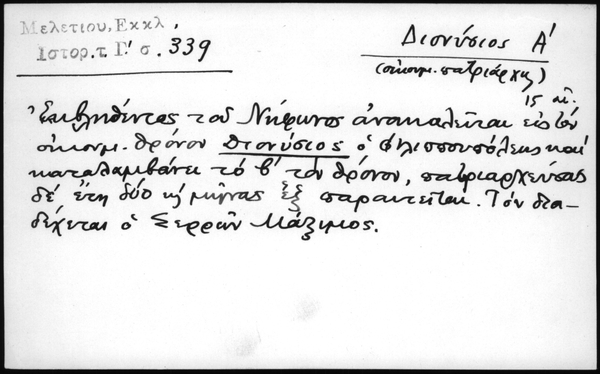 Μελετίου, Εκκλ.
Ιστορ. τ. Γ' σ. 339
Διονύσιος Α'
(οἰκουμ. πατριάρχης)
15 αἰ.
Ἐκβληθέντος τοῦ Νήφωνος ἀνακαλεῖται εἰς τὸν
οἰκουμ. θρόνον Διονύσιος ὁ Φιλιππουπόλεως καὶ
καταλαμβάνει τὸ β' τὸν θρόνον, πατριαρχεύσας
δὲ ἔτη δύο κ' μῆνας ἕξ παραιτεῖται. Τὸν δια-
δέχεται ὁ Σερρῶν Μάξιμος.